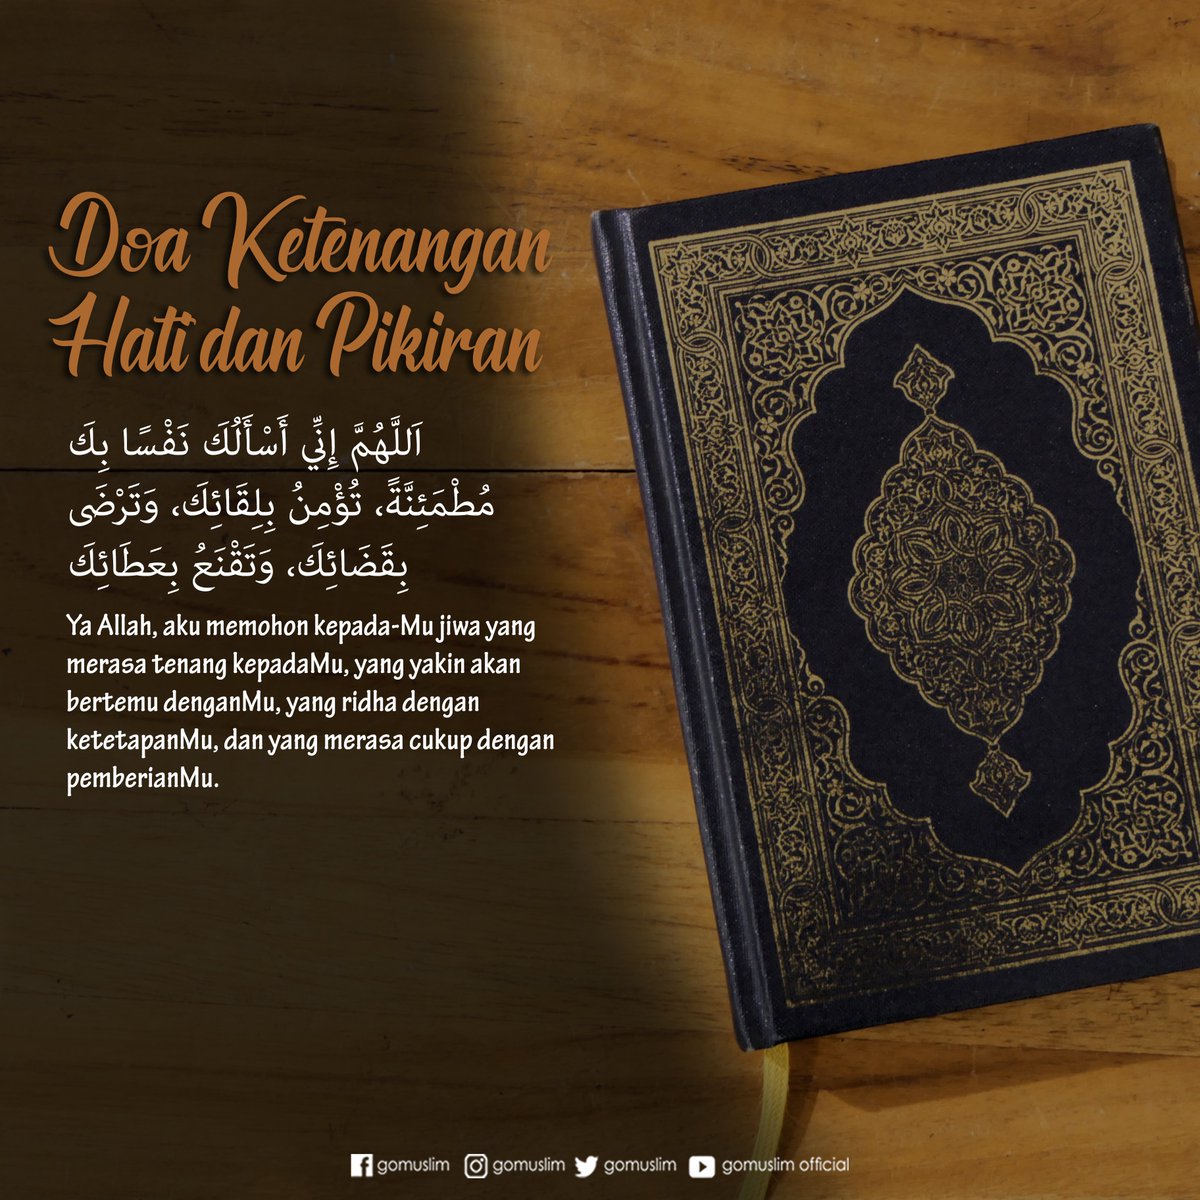 Doa Ketenangan
Hati dan Pikiran
اَللَّهُمَّ إِنِّي أَسْأَلُكَ نَفْسًا بِكَ
مُطْمَئِنَّةً، تُؤْمِنُ بِلِقَائِكَ، وَتَرْضَى
بِقَضَائِكَ، وَتَقْنَعُ بِعَطَائِكَ
Ya Allah, aku memohon kepada-Mu jiwa yang
merasa tenang kepadaMu, yang yakin akan
bertemu denganMu, yang ridha dengan
ketetapanMu, dan yang merasa cukup dengan
pemberianMu.
gomuslim gomuslim gomuslim gomuslim official